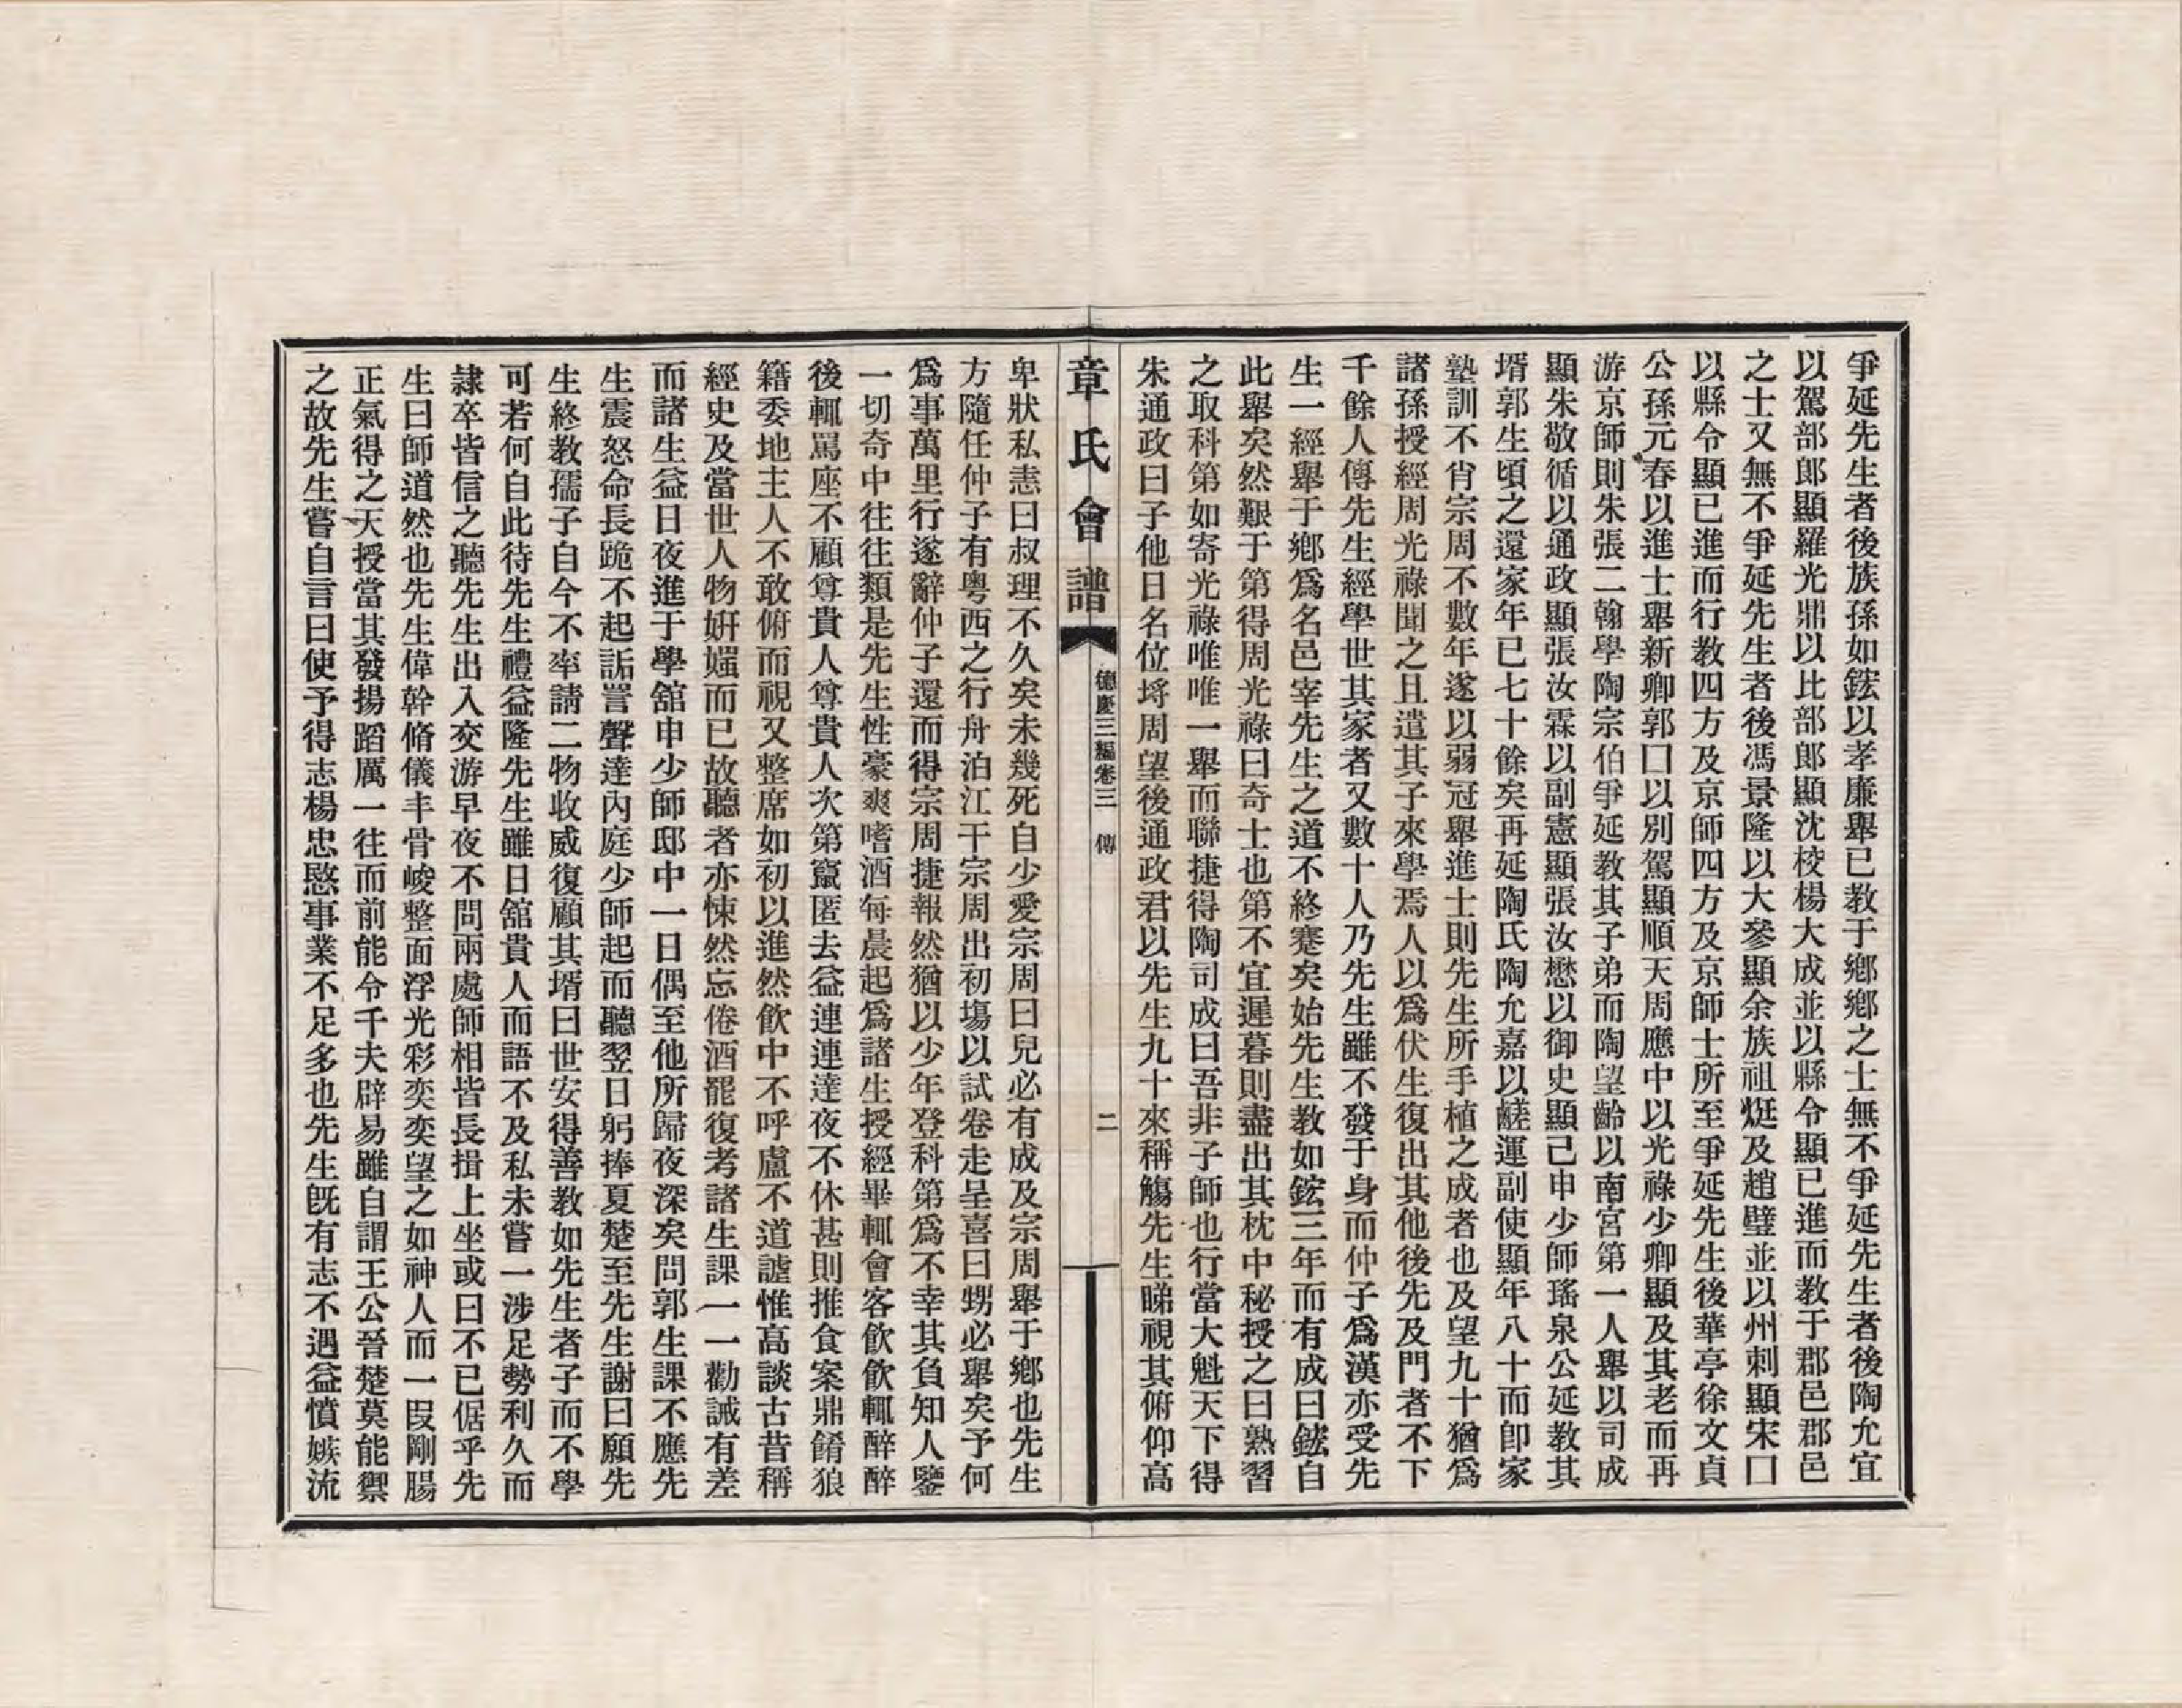 爭延先生者後族孫如鋐以孝廉舉已教于鄉鄉之士無不爭延先生者後陶允宜
以駕部郎顯羅光鼎以比部郎顯沈桉楊大成並以縣令顯已進而教于郡邑郡邑
之士又無不爭延先生者後馮景隆以大參顯余族祖烶及趙璧並以州刺顯宋囗
以縣令顯已進而行教四方及京師四方及京師士所至爭延先生後華亭徐文貞
公孫元春以進士舉新卿郭囗以別駕顯順天周應中以光祿少卿顯及其老而再
游京師則朱張二翰學陶宗伯爭延教其子弟而陶望齡以南宮第一人舉以司成
顯朱敬循以通政顯張汝霖以副憲顯張汝懋以御史顯已申少師瑤泉公延教其
壻郭生頃之還家年已七十餘矣再延陶氏陶允嘉以鹺運副使顯年八十而卽家
塾訓不肖宗周不數年遂以弱冠舉進士則先生所手植之成者也及望九十猶爲
諸孫授經周光祿聞之且遣其子來學焉人以爲伏生復出其他後先及門者不下
千餘人傳先生經學世其家者又數十人乃先生雖不發于身而仲子爲漢亦受先
生一經舉于鄉爲名邑宰先生之道不終蹇矣始先生教如鋐三年而有成曰鋐自
此舉矣然艱于第得周光祿曰奇士也第不宜遲暮則盡出其枕中秘授之曰熟習
之取科第如寄光祿唯唯一舉而聯捷得陶司成曰吾非子師也行當大魁天下得
朱通政曰子他日名位埒周望後通政君以先生九十來稱觴先生睇視其俯仰高
章氏會譜
德慶三編卷三 傳
二
卑狀私恚曰叔理不久矣未幾死自少愛宗周曰兒必有成及宗周舉于鄉也先生
方隨任仲子有粵西之行舟泊江干宗周出初塲以試卷走呈喜曰甥必舉矣予何
爲事萬里行遂辭仲子還而得宗周捷報然猶以少年登科第爲不幸其負知人鑒
一切奇中往往類是先生性豪爽嗜酒每晨起爲諸生授經畢輒會客飮飮輒醉醉
後輒罵座不顧尊貴人尊貴人次第竄匿去益連連達夜不休甚則推食案鼎餚狼
籍委地主人不敢俯而視又整席如初以進然飮中不呼盧不道謔惟高談古昔稱
經史及當世人物姸媸而已故聽者亦悚然忘倦酒罷復考諸生課一一勸誡有差
而諸生益日夜進于學舘申少師邸中一日偶至他所歸夜深矣問郭生課不應先
生震怒命長跪不起詬詈聲達內庭少師起而聽翌日躬捧夏楚至先生謝曰願先
生終教孺子自今不率請二物收威復顧其壻曰世安得善教如先生者子而不學
可若何自此待先生禮益隆先生雖日舘貴人而語不及私未嘗一涉足勢利久而
隷卒皆信之聽先生出入交游早夜不問兩處師相皆長揖上坐或曰不已倨乎先
生曰師道然也先生偉幹脩儀丰骨峻整面浮光彩奕奕望之如神人而一叚剛腸
正氣得之天授當其發揚蹈厲一往而前能令千夫辟易雖自謂王公晉楚莫能禦
之故先生嘗自言曰使予得志楊忠愍事業不足多也先生旣有志不遇益憤嫉流